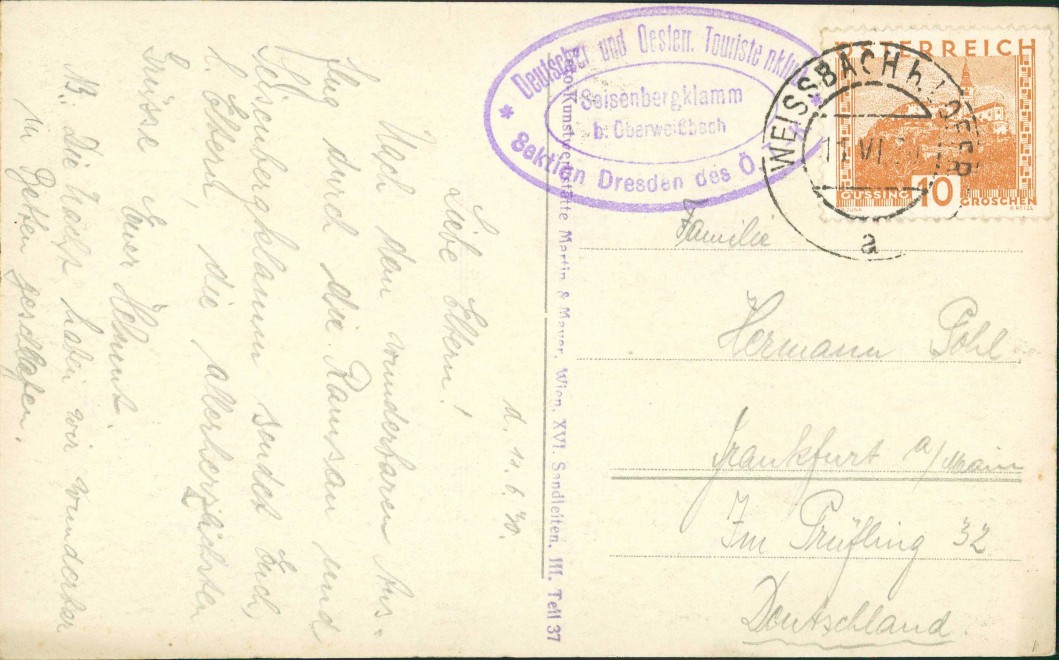 d. 11.6.30.
Liebe Eltern!
Nach dem wunderbaren Aus=
flug durch die Ramsau und
Seisenbergklamm sendet Euch,
l. Eltern, die allerherzlichsten
Grüsse Euer Helmut.
NB. Die Nacht haben wir wunderbar
in Betten geschlafen.
Deutscher und Oesterr. Touristenklub
Seisenbergklamm
b. Oberweißbach
* Sektion Dresden des Ö. *
Kunstwerkstätte Martin & Mayer, Wien, XVI. Sandleiten, III. Teil 37
ÖSTERREICH
GÜSSING
10 GROSCHEN
WEISSBACH b. LOFER
11 VI
a
Familie
Hermann Pohl.
Frankfurt a/Main
Im Prüfling 32
Deutschland.